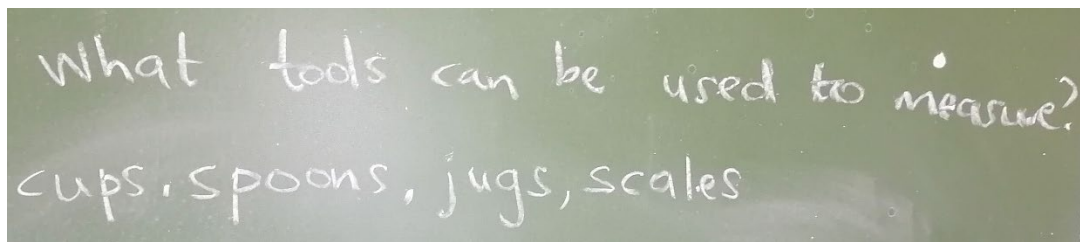 What tools can be used to measure?
cups, spoons, jugs, scales